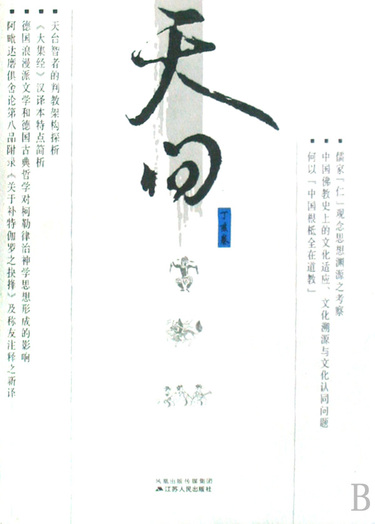 天问
丁亥卷
儒家「仁」观念思想渊源之考察
中国佛教史上的文化适应、文化溯源与文化认同问题
何以「中国根柢全在道教」
天台智者的判教架构探析
《大集经》汉译本特点简析
德国浪漫派文学和德国古典哲学对柯勒律治神学思想形成的影响
阿毗达磨俱舍论第八品附录《关于补特伽罗之抉择》及称友注释之新译
凤凰出版传媒集团
江苏人民出版社
B